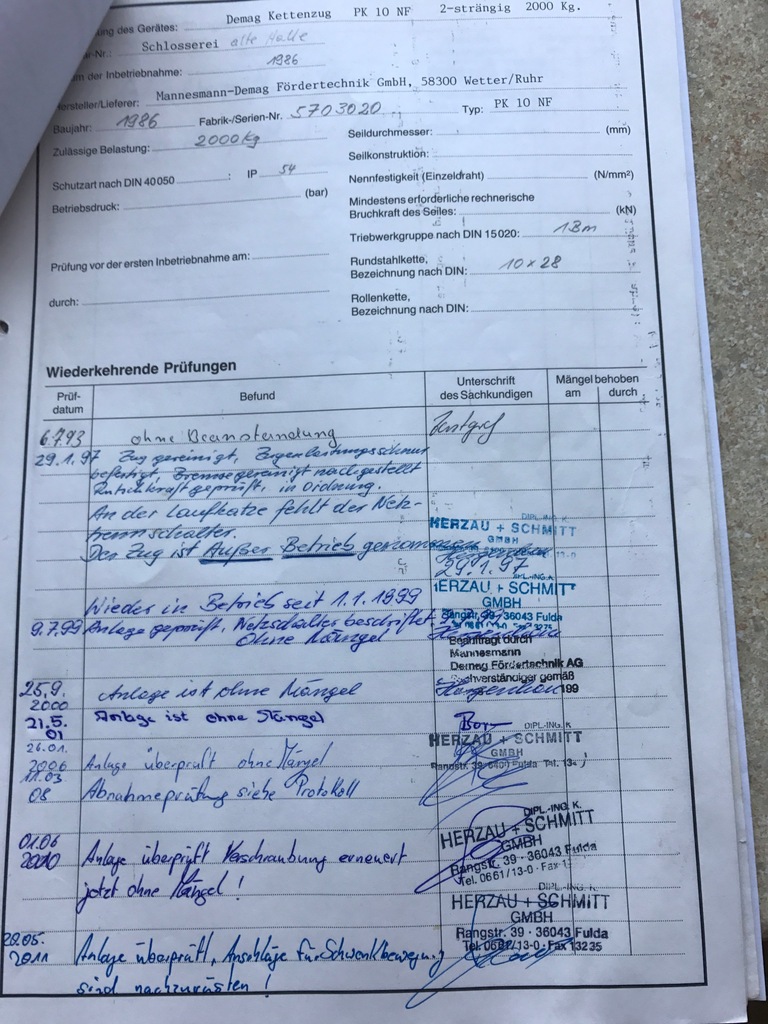 ung des Gerätes: Demag Kettenzug PK 10 NF 2-strängig 2000 Kg.
r-Nr.: Schlosserei alte Halle
m der Inbetriebnahme: 1986
Hersteller/Lieferer: Mannesmann-Demag Fördertechnik GmbH, 58300 Wetter/Ruhr
Baujahr: 1986 Fabrik-/Serien-Nr. 5703020 Typ: PK 10 NF
Zulässige Belastung: 2000 kg Seildurchmesser: (mm)
Seilkonstruktion:
Schutzart nach DIN 40050 : IP 54 Nennfestigkeit (Einzeldraht) (N/mm²)
Betriebsdruck: (bar) Mindestens erforderliche rechnerische
Bruchkraft des Seiles: (kN)
Triebwerkgruppe nach DIN 15020: 1Bm
Prüfung vor der ersten Inbetriebnahme am: Rundstahlkette,
Bezeichnung nach DIN: 10 x 28
durch: Rollenkette,
Bezeichnung nach DIN:
Wiederkehrende Prüfungen
Prüf-
datum Befund Unterschrift
des Sachkundigen Mängel behoben
am durch
6.7.93 ohne Beanstandung
29.1.97 Zug gereinigt,
befestigt, Bremse gereinigt nachgestellt
geprüft, in Ordnung.
An der Laufkatze fehlt der Netz-
trennschalter.
Der Zug ist Außer Betrieb genommen
DIPL.-ING. K.
HERZAU + SCHMITT
GMBH
29.1.97
DIPL.-ING. K.
HERZAU + SCHMITT
GMBH
Rangstr. 39 · 36043 Fulda
Wieder in Betrieb seit 1.1.1999
9.7.99 Anlage geprüft, Netzschalter beschriftet,
Ohne Mängel
Beauftragt durch
Mannesmann
Demag Fördertechnik AG
Sachverständiger gemäß
199
25.9.
2000 Anlage ist ohne Mängel
21.5.
01 Anlage ist ohne Mängel
26.01.
2006 Anlage überprüft ohne Mängel
DIPL.-ING. K.
HERZAU + SCHMITT
GMBH
11.03
08 Abnahmeprüfung siehe Protokoll
01.06
2010 Anlage überprüft Verschraubung erneuert
jetzt ohne Mängel!
DIPL.-ING. K.
HERZAU + SCHMITT
GMBH
Rangstr. 39 · 36043 Fulda
Tel. 0661/13-0 · Fax 1
DIPL.-ING. K.
HERZAU + SCHMITT
GMBH
Rangstr. 39 · 36043 Fulda
Tel. 0661/13-0 · Fax 13235
2011 Anlage überprüft, Anschläge für Schwenkbewegung
sind nachzurüsten!